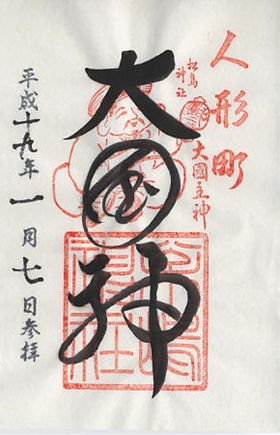 人形町
松島
神社
大國主神
大国神
平成十九年一月七日参拝
松島神社